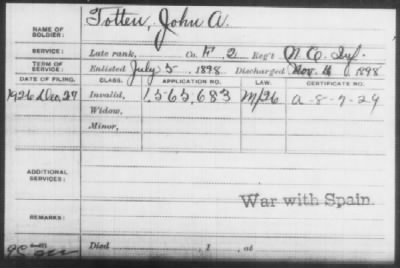 NAME OF SOLDIER: Totten, John A.
SERVICE: Late rank, Co. K, 2 Reg't N.C. Inf.
TERM OF SERVICE: Enlisted July 5, 1898 Discharged Nov. 4, 1898
DATE OF FILING. CLASS. APPLICATION NO. LAW. CERTIFICATE NO.
1926 Dec. 27 Invalid, 1,565,683 M/26 A-8-7-29
Widow,
Minor,
ADDITIONAL SERVICES:
War with Spain.
REMARKS:
Died , 1 , at